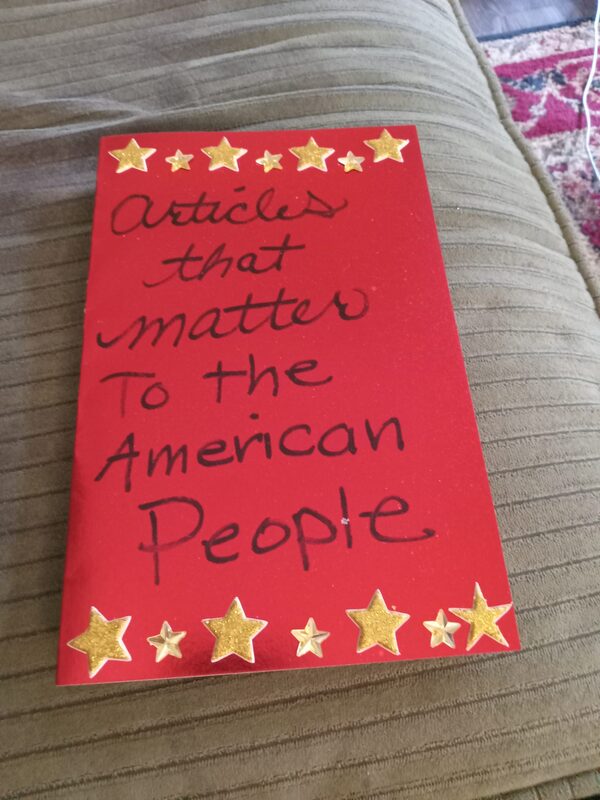 Articles
that
matter
To the
American
People